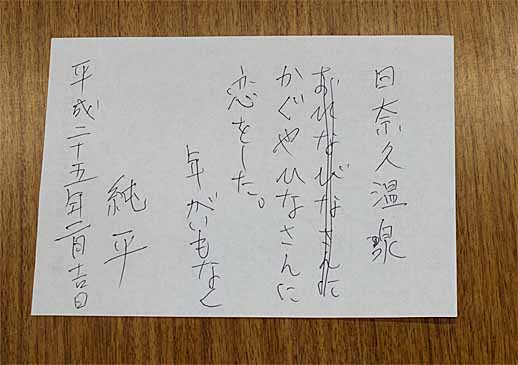 日奈久温泉
びなさんに
かぐやひなさんに
恋をした。
年がいもなく
純平
平成二十五年二月吉日